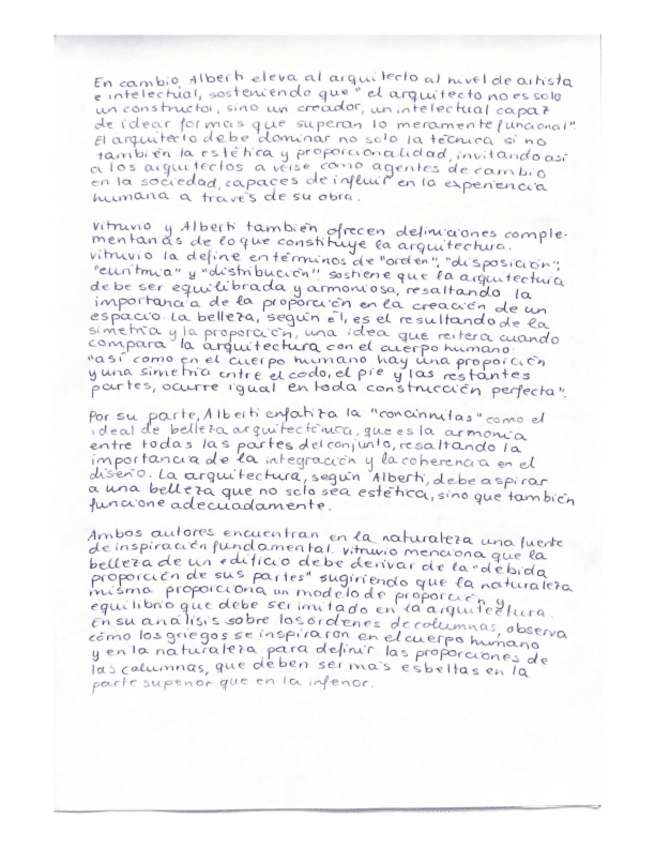 En cambio, Alberti eleva al arquitecto al nivel de artista
e intelectual, sosteniendo que "el arquitecto no es solo
un constructor, sino un creador, un intelectual capaz
de idear formas que superan lo meramente funcional".
El arquitecto debe dominar no solo la técnica si no
también la estética y proporcionalidad, invitando así
a los arquitectos a verse como agentes de cambio
en la sociedad, capaces de influir en la experiencia
humana a través de su obra.
Vitruvio y Alberti también ofrecen definiciones comple-
mentarias de lo que constituye la arquitectura.
Vitruvio la define en términos de "orden", "disposición",
"euritmia" y "distribución", sostiene que la arquitectura
debe ser equilibrada y armoniosa, resaltando la
importancia de la proporción en la creación de un
espacio. La belleza, según él, es el resultando de la
simetría y la proporción, una idea que reitera cuando
compara la arquitectura con el cuerpo humano:
"así como en el cuerpo humano hay una proporción
y una simetría entre el codo, el pie y las restantes
partes, ocurre igual en toda construcción perfecta".
Por su parte, Alberti enfatiza la "concinnitas" como el
ideal de belleza arquitectónica, que es la armonía
entre todas las partes del conjunto, resaltando la
importancia de la integración y la coherencia en el
diseño. La arquitectura, según Alberti, debe aspirar
a una belleza que no solo sea estética, sino que también
funcione adecuadamente.
Ambos autores encuentran en la naturaleza una fuente
de inspiración fundamental. Vitruvio menciona que la
belleza de un edificio debe derivar de la "debida
proporción de sus partes" sugiriendo que la naturaleza
misma proporciona un modelo de proporción y
equilibrio que debe ser imitado en la arquitectura.
En su análisis sobre los órdenes de columnas, observa
cómo los griegos se inspiraron en el cuerpo humano
y en la naturaleza para definir las proporciones de
las columnas, que deben ser más esbeltas en la
parte superior que en la inferior.